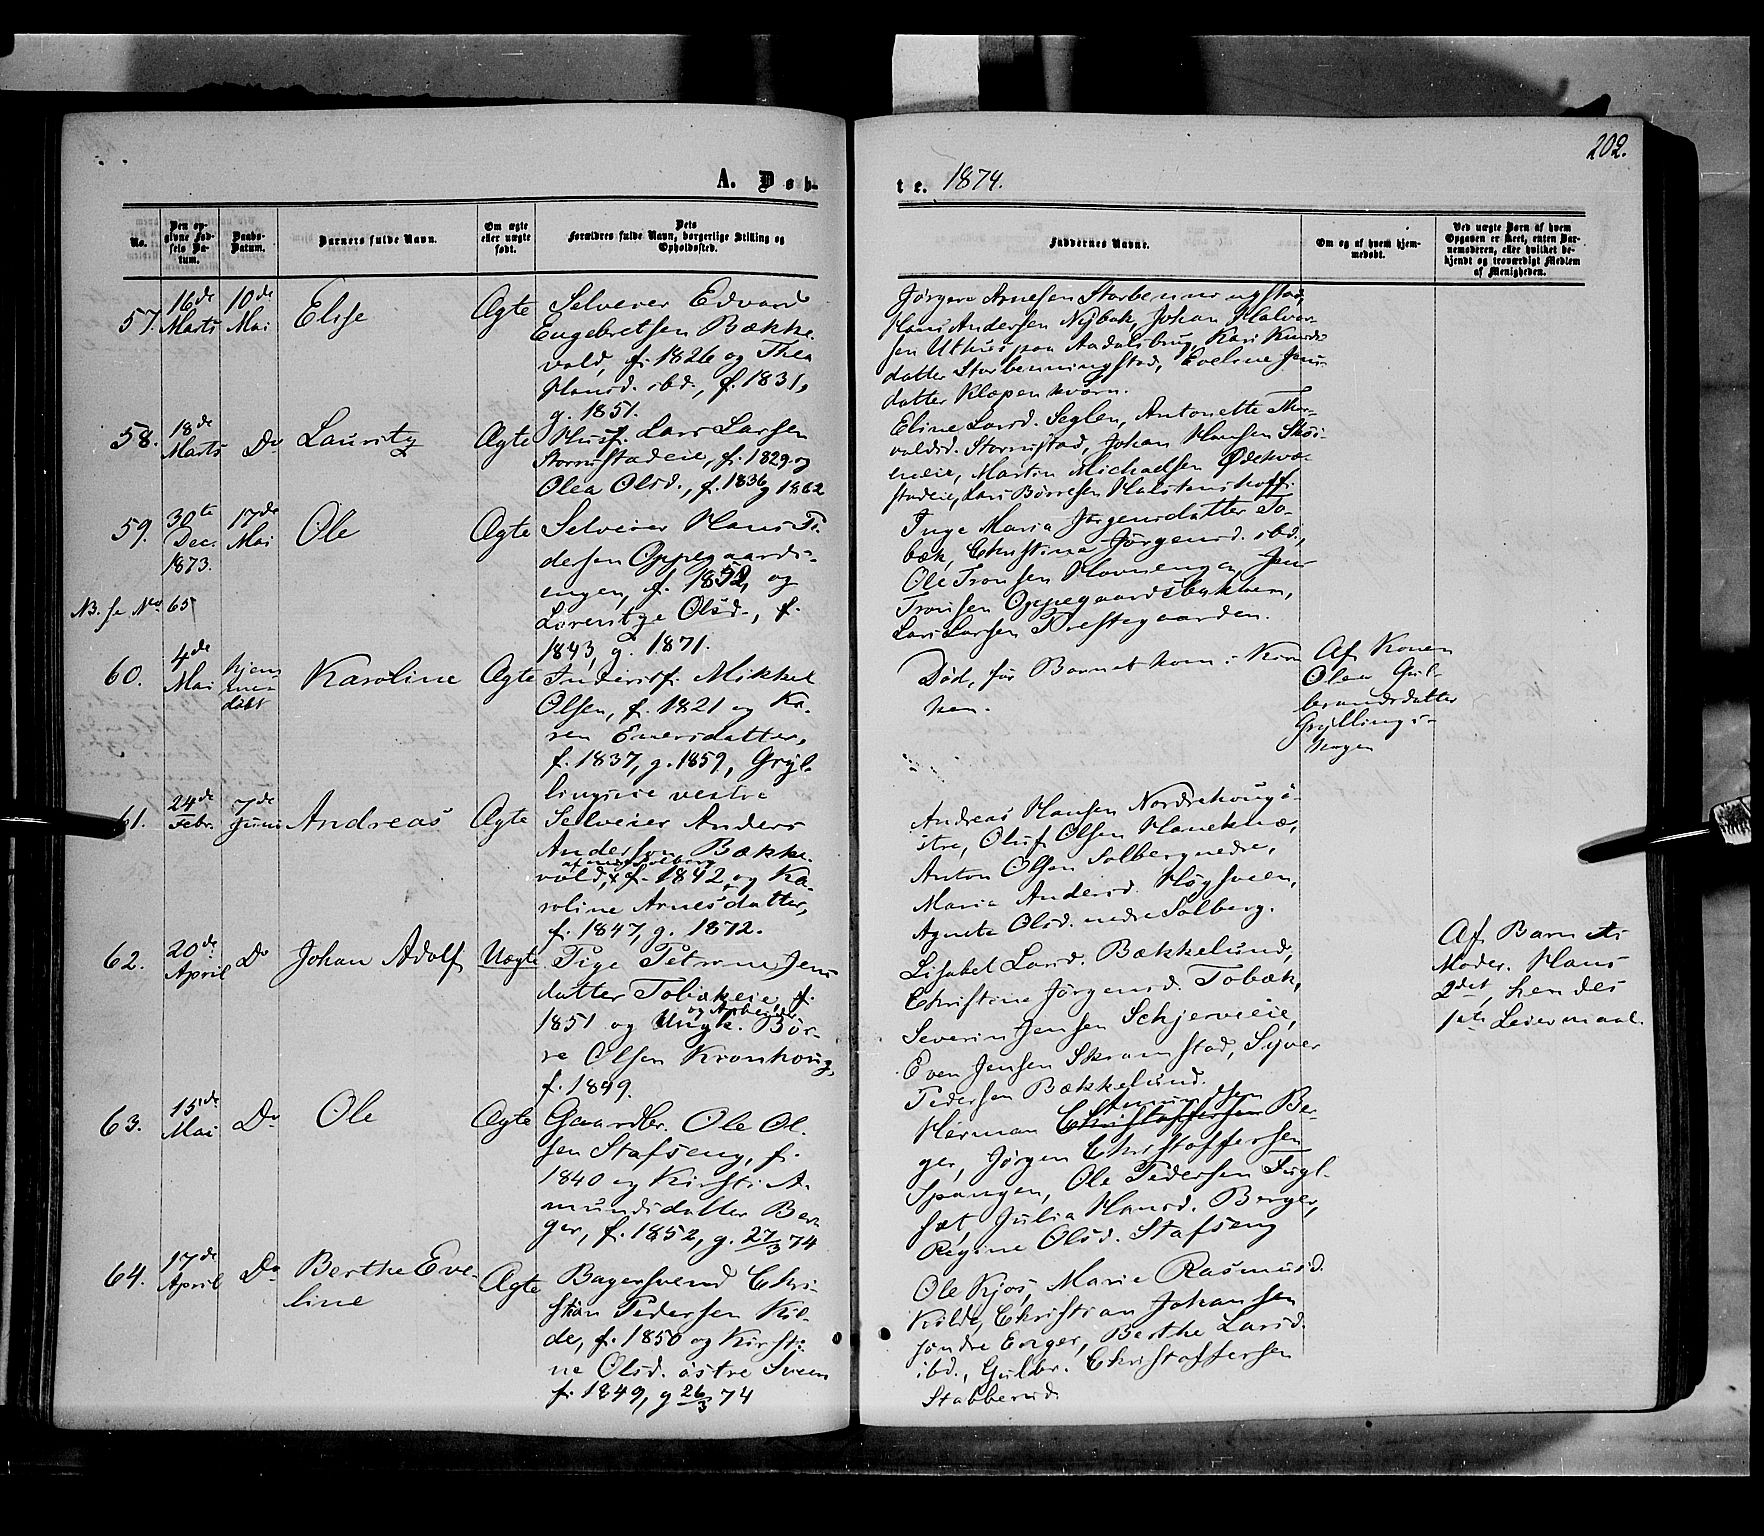 202.
A. Døb-
te. 1874.
No.
Den op-
givne Fød-
sels Da-
tum.
Daabs-
Datum.
Barnets fulde Navn.
Om ægte
eller uægte
født.
Dets
Forældres fulde Navn, borgerlige Stilling og
Opholdssted.
Faddernes Navne.
Om og af hvem hjem-
medøbt.
Ved uægte Børn af hvem
Opgaven er skeet, enten Bar-
nemoderen, eller hvilket be-
kjendt og troværdigt Medlem
af Menigheden.
57.
16de
Marts
10de
Mai
Elise
Ægte
Selveier Edvard
Engebretsen Bække-
vold, f. 1826 og Thea
Hansd. ibd., f. 1831,
g. 1851.
Jørgen Arnesen Storbenningstad,
Hans Andersen Nybak, Johan Halvor-
sen Uthus paa Aadalsbrug, Kari Knuds-
datter Storbenningstad, Eveline Jens-
datter Klæpenkværn.
58.
18de
Marts
Do
Lauritz
Ægte
Husf. Lars Larsen
Stornstadeie, f. 1829 og
Olea Olsd., f. 1836 g 1862
Eline Larsd. Seglen, Antonette Thor-
valdsd. Stornstad, Johan Hansen Skoi-
eneie, Martin Michaelsen Ødekva-
stadeie, Lars Børresen Halstenshoff.
59.
30te
Dec.
1873.
17de
Mai
Ole
Ægte
Selveier Hans Pe-
dersen Oppegaards-
engen, f. 1852, og
Lorentze Olsd., f.
1843, g. 1871.
NB. se No 65
Inge Maria Jørgensdatter To-
bæk, Christine Jørgensd. ibd.,
Ole Tronsen Hovnengen, Jens
Tronsen Oppegaardsbakken,
Lars Larsen Prestegaarden.
60.
4de
Mai
hjem-
me-
døbt
Karoline
Ægte
Inderstf. Mikkel
Olsen, f. 1821 og Ka-
ren Eversdatter,
f. 1837, g. 1859, Gryl-
lingseie vestre
Død, før Barnet kom i Kir-
ken.
Af Konen
Olea Gul-
brandsdatter
Gryllings-
hagen
61.
24de
Febr.
7de
Juni
Andreas
Ægte
Selveier Anders
Andersen Bække-
vold, f. 1842, og Ka-
roline Arnesdatter,
f. 1847, g. 1872.
af nedre Solberg
Andreas Hansen Nordrehougø-
stre, Oluf Olsen Haneknæ,
Anton Olsen Solbergnedre,
Maria Andersd. Høgsveen,
Agnete Olsd. nedre Solberg.
62.
20de
April
Do
Johan Adolf
Uægte
Pige Petrone Jens-
datter Tobækeie, f.
1851 og Ungk. og Arbeider Bør-
re Olsen Kronhoug,
f. 1849.
Lisabet Larsd. Bækkelund,
Christine Jørgensd. Tobæk,
Severin Jensen Schjerveeie,
Even Jensen Skramstad, Syver
Pedersen Bækkelund.
Af Barnets
Moder. Hans
2det, hendes
1ste Leiermaal.
63.
15de
Mai
Do
Ole
Ægte
Gaardbr. Ole Ol-
sen Stafseng, f.
1840 og Kirsti A-
mundsdatter Ber-
ger, f. 1852, g. 27/3 74
Amundsen
Herman Christoffersen Ber-
ger, Jørgen Christoffersen
Spangen, Ole Pedersen Fugl-
sæt, Julia Hansd. Berger,
Regine Olsd. Stafseng
64.
17de
April
Do
Berthe Eve-
line
Ægte
Bagersvend Chri-
stian Pedersen Kil-
de, f. 1850 og Kirsti-
ne Olsd. østre Sveen
f. 1849, g 26/3 74
Ole Kjos, Marie Rasmusd.
Kilde, Christian Johansen
søndre Enger, Berthe Larsd.
ibd., Gulbr. Christoffersen
Stabberud.